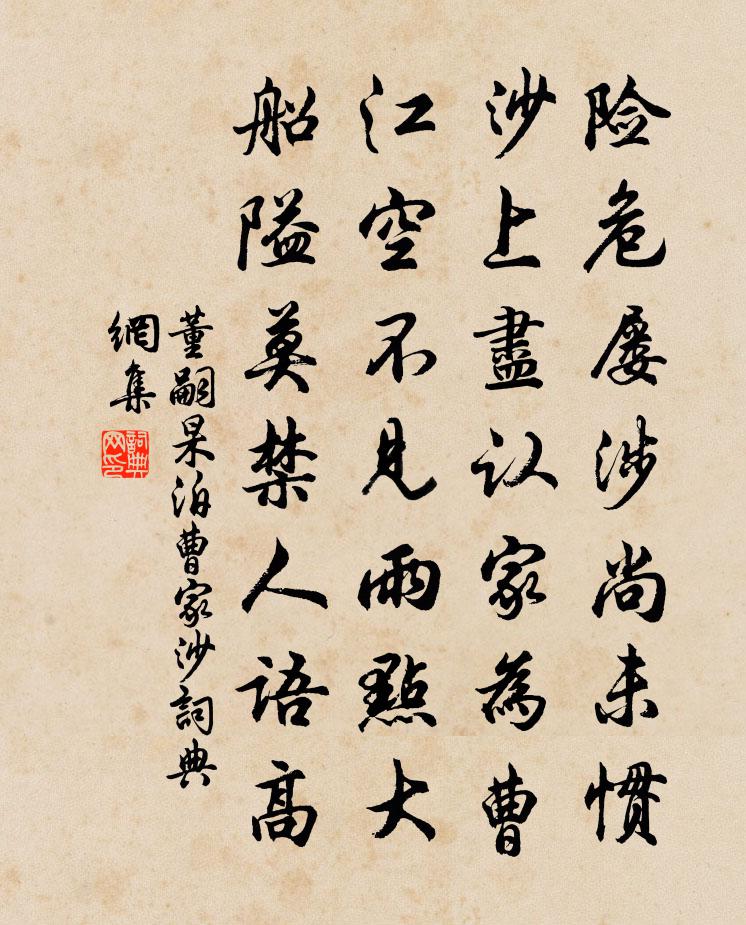 险危屡涉尚未惯
沙上盡认家為曹
江空不见雨點大
船隘莫禁人语高
董嗣杲泊曹家沙詞典
網集
詞典
网印